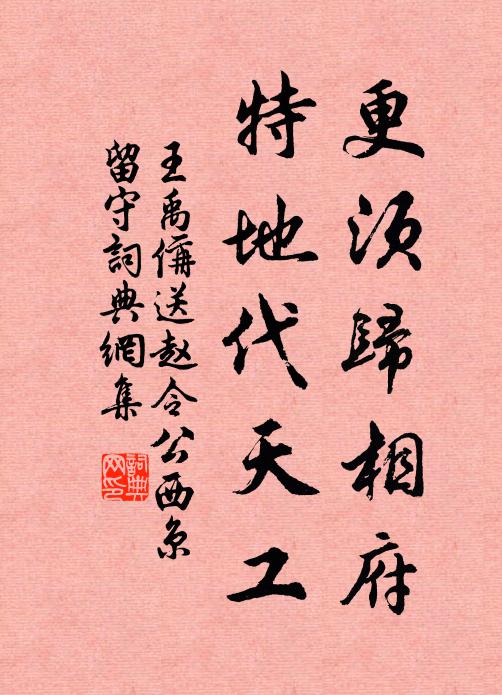 更须歸相府
特地代天工
王禹偁送赵令公西京
留守詞典網集
詞典网印